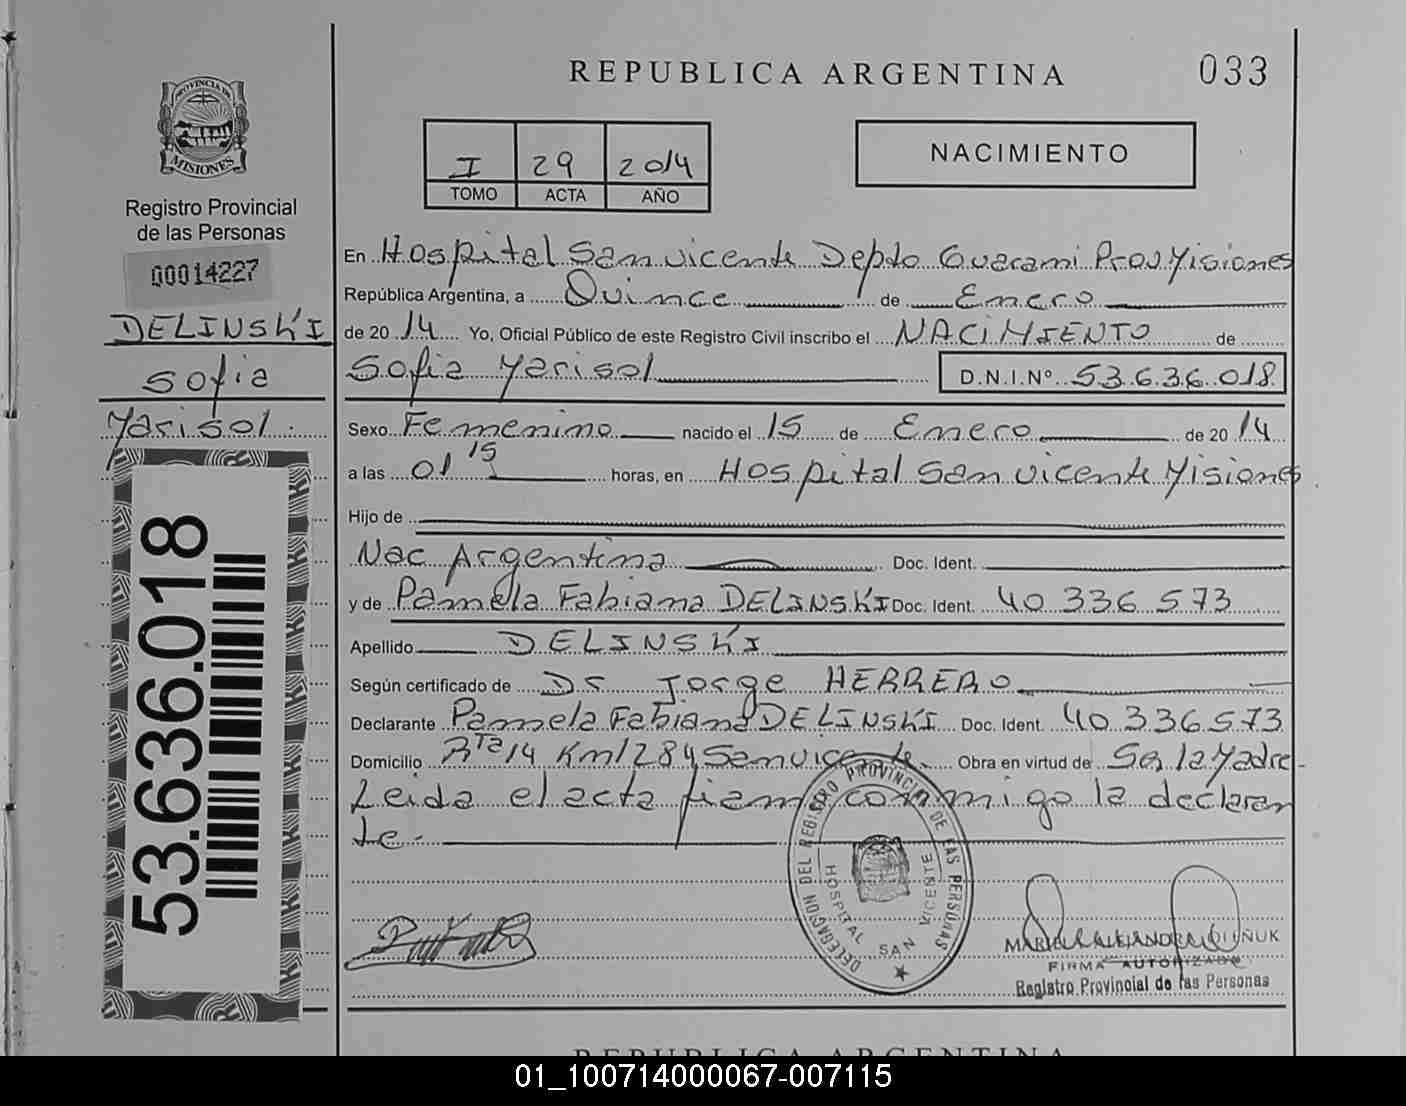 REPUBLICA ARGENTINA
033
PROVINCIA DE
MISIONES
Registro Provincial
de las Personas
00014227
DELINSKI
Sofia
Marisol
53.636.018
I 29 2014
TOMO ACTA AÑO
NACIMIENTO
En Hospital San vicente Depto Guarani Prov Misiones
República Argentina, a Quince de Enero
de 2014 Yo, Oficial Público de este Registro Civil inscribo el NACIMIENTO de
Sofia Marisol D.N.I.Nº 53.636.018
Sexo Femenino nacido el 15 de Enero de 2014
a las 01 15 horas, en Hospital San vicente Misiones
Hijo de
Nac Argentina Doc. Ident.
y de Pamela Fabiana DELINSKI Doc. Ident. 40 336 573
Apellido DELINSKI
Según certificado de Dr Jorge HERRERO
Declarante Pamela Fabiana DELINSKI Doc. Ident. 40 336 573
Domicilio RTa 14 Km 1284 San vicente. Obra en virtud de Ser la Madre-
Leida el acta firma conmigo la declaran
te.-
DELEGACION DEL REGISTRO PROVINCIAL DE LAS PERSONAS
HOSPITAL SAN VICENTE
FIRMA AUTORIZADA
Registro Provincial de las Personas
REPUBLICA ARGENTINA
01_100714000067-007115